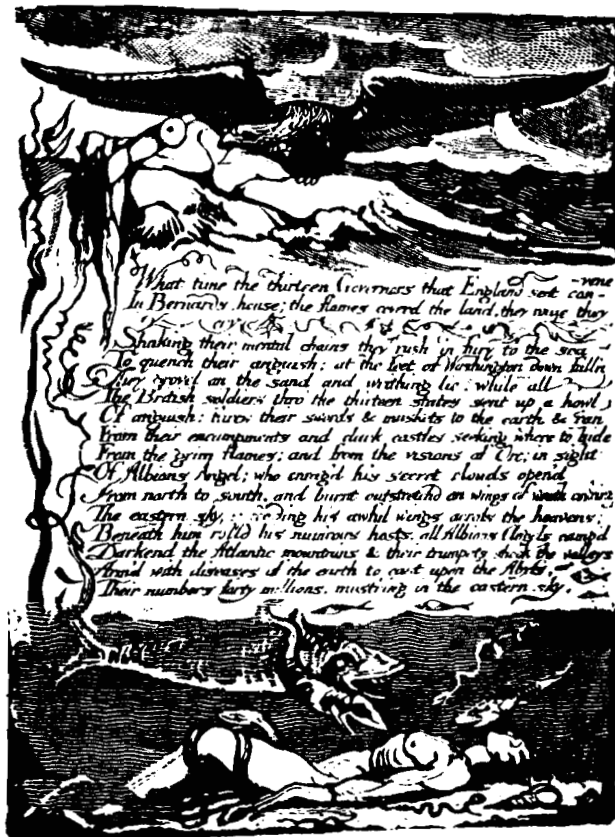 What time the thirteen Governors that England sent con-
-vene
In Bernards house; the flames coverd the land, they rouze they
cry
Shaking their mental chains they rush in fury to the sea
To quench their anguish; at the feet of Washington down falln
They grovel on the sand and writhing lie, while all
The British soldiers thro the thirteen states sent up a howl
Of anguish: threw their swords & muskets to the earth & ran
From their encampments and dark castles seeking where to hide
From the grim flames; and from the visions of Orc; in sight
Of Albions Angel; who enrag'd his secret clouds open'd
From north to south, and burnt outstretchd on wings of wrath cov'ring
The eastern sky, spreading his awful wings across the heavens;
Beneath him rolld his numrous hosts, all Albions Angels camp'd
Darkend the Atlantic mountains & their trumpets shook the valleys
Arm'd with diseases of the earth to cast upon the Abyss,
Their numbers forty millions, mustring in the eastern sky.